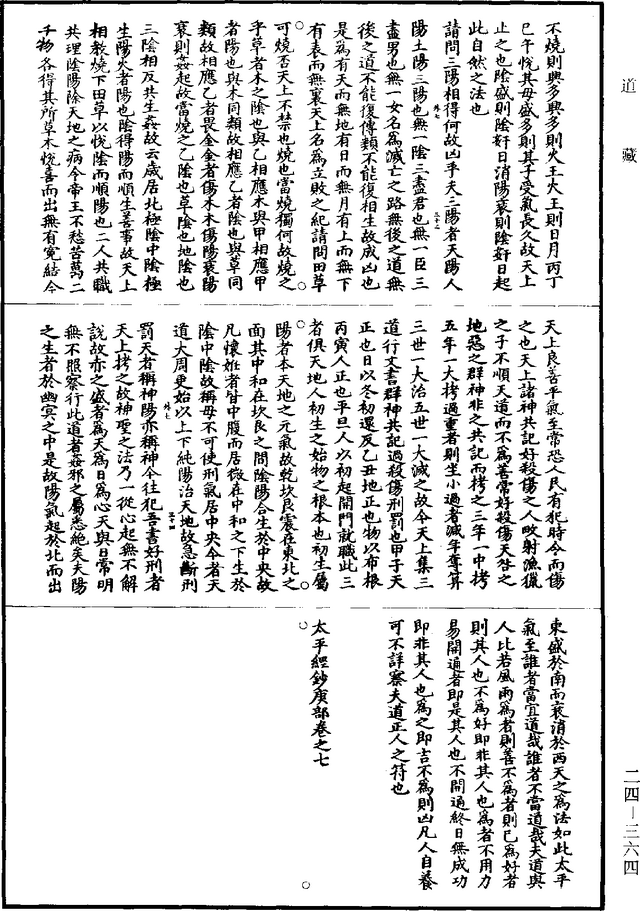 道藏
不燒則輿多輿多則火王火王則日月丙丁
巳午悅其母盛多則其子受氣長久故天上
止之也陰盛則陰奸日消陽衰則陰奸日起
此自然之法也
請問三陽相得何故凶乎天三陽者天陽人
陽土陽三陽也無一陰三盡君也無一臣三
盡男也無一女名為滅亡之路無後之道無
後之道不能復傳類不能復相生故成凶也
是為有天而無地有日而無月有上而無下
有表而無裏天上名為立敗之紀請問田草
可燒否天上不禁也燒也當燒獨何故燒之
乎草者木之陰也與乙相應木與甲相應甲
者陽也與木同類故相應乙者陰也與草同
類故相應乙者畏金金者傷木木傷陽衰陽
衰則姦起故當燒之乙陰也草陰也地陰也
三陰相反共生姦故云歲居北極陰中陰極
生陽火者陽也陰得陽而順生善事故天上
相教燒下田草以悅陰而順陽也二人共職
共理陰陽除天地之病令帝王不愁苦萬二
千物各得其所草木悅喜而出無有冤結令
天上良善平氣至常恐人民有犯時令而傷
之也天上諸神共記好殺傷之人畋射漁獵
之子不順天道而不為善常好殺傷天咎之
地惡之群神非之共記而拷之三年一中拷
五年一大拷過重者則坐小過者減年奪算
三世一大治五世一大滅之故今天上集三
道行文書群神共記過殺傷刑罰也甲子天
正也日以冬初還反乙丑地正也物以布根
丙寅人正也平旦人以初起開門就職此三
者俱天地人初生之始物之根本也初生屬
陽陽者本天地之元氣故乾坎艮震在東北之
面其中和在坎艮之間陰陽合生於中央故
凡懷姙者在中腹而居微在中和之下生於
陰中陰故稱母不可使刑氣居中央令者天
道大周更始以上下純陽治天地故急斷刑
罰天者稱神陽亦稱神令往犯吾書好刑者
天上拷之故神聖之法乃一從心起無不解
說故赤之盛者為天為日為心天與日常明
無不照察行此道者姦邪之屬悉絶矣夫陽
之生者於幽冥之中是故陽氣起於北而出
東盛於南而衰消於西天之為法如此太平
氣至誰者當宜道哉誰者不當道哉夫道與
人比若風雨為者則善不為者則已為好者
則其人也不為好即非其人也為者不用力
易開通者即是其人也不開通終日無成功
即非其人也為之即吉不為則凶凡人自養
可不詳察夫道正人之符也
太平經鈔庚部卷之七
二四—三六四